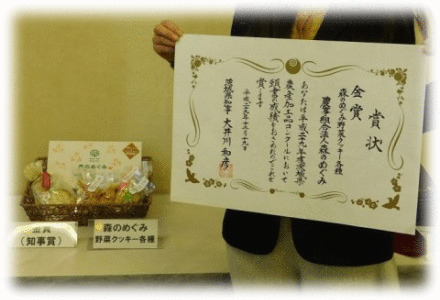 賞状
金賞
森のめぐみ野菜クッキー各種
農事組合法人森のめぐみ
あなたは平成二十九年度茨城県
農産加工品コンクールにおいて
頭書の成績をおさめたのでこれを
賞します
平成二十九年十二月十九日
茨城県知事 大井川和彦
金賞
(知事賞)
森のめぐみ
野菜クッキー各種